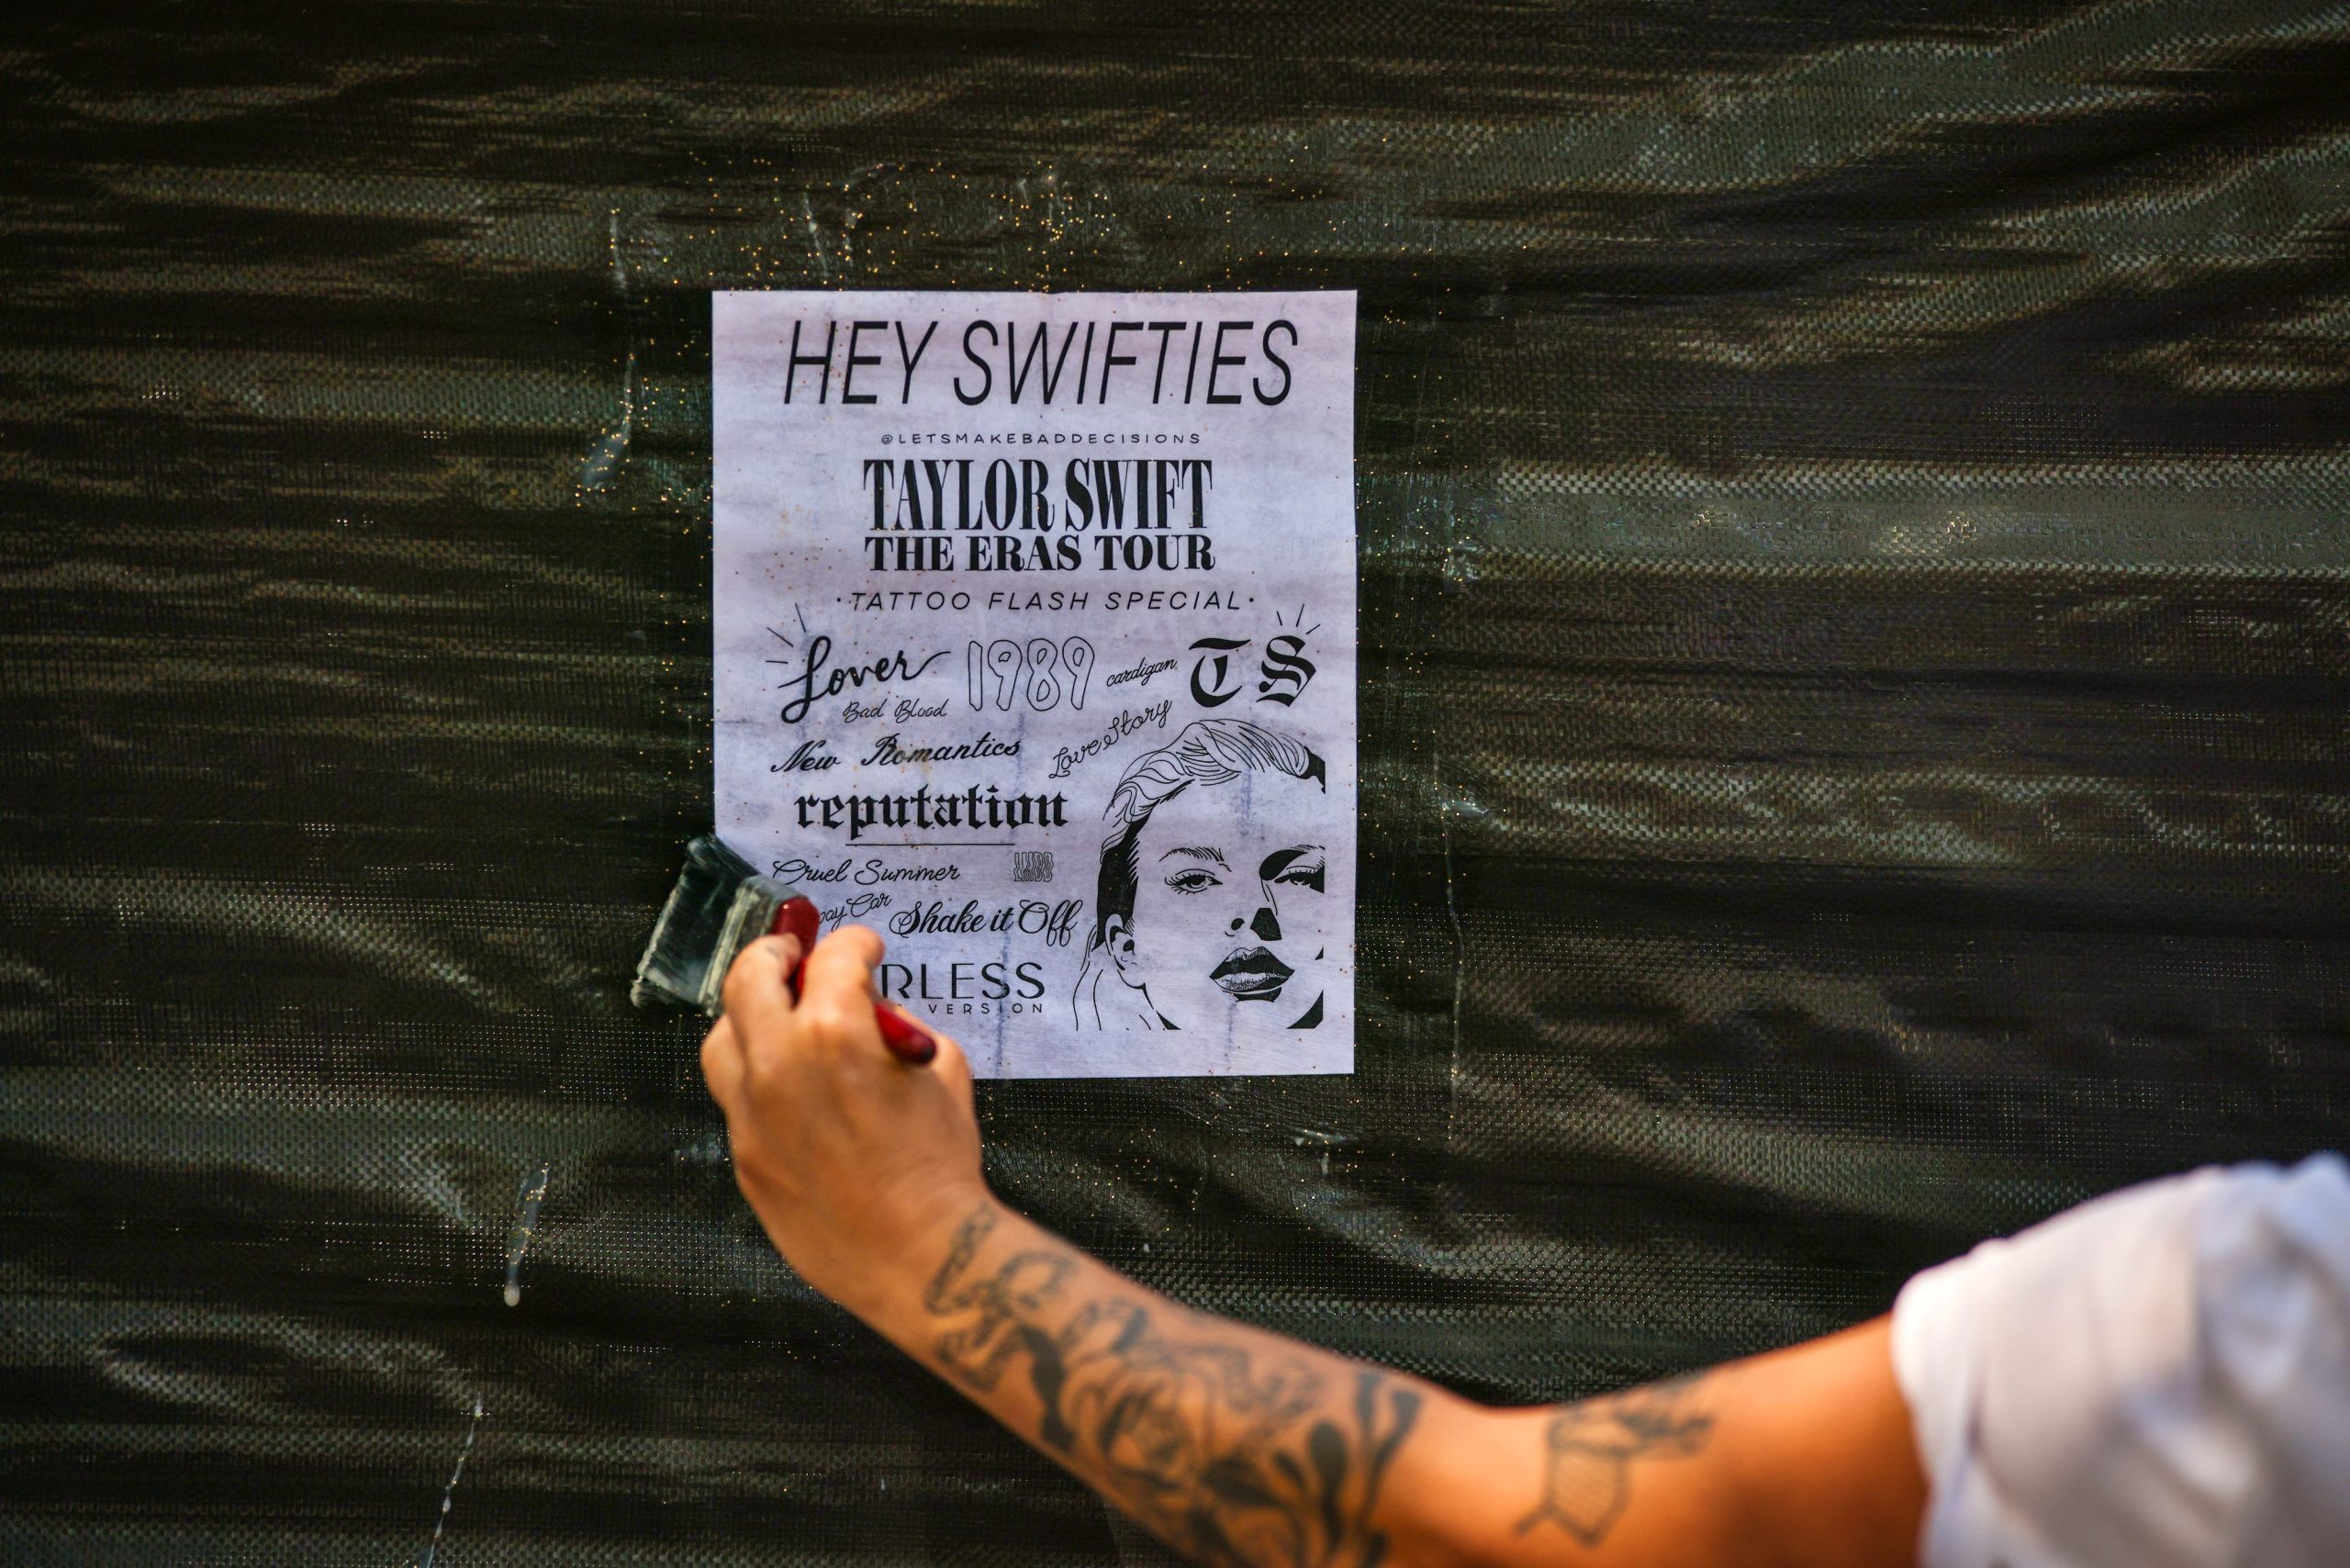 HEY SWIFTIES
@LETSMAKEBADDECISIONS
TAYLOR SWIFT
THE ERAS TOUR
·TATTOO FLASH SPECIAL·
Lover
1989
cardigan
TS
Bad Blood
Love Story
New Romantics
reputation
Cruel Summer
LMBD
Car
Shake it Off
RLESS
VERSION